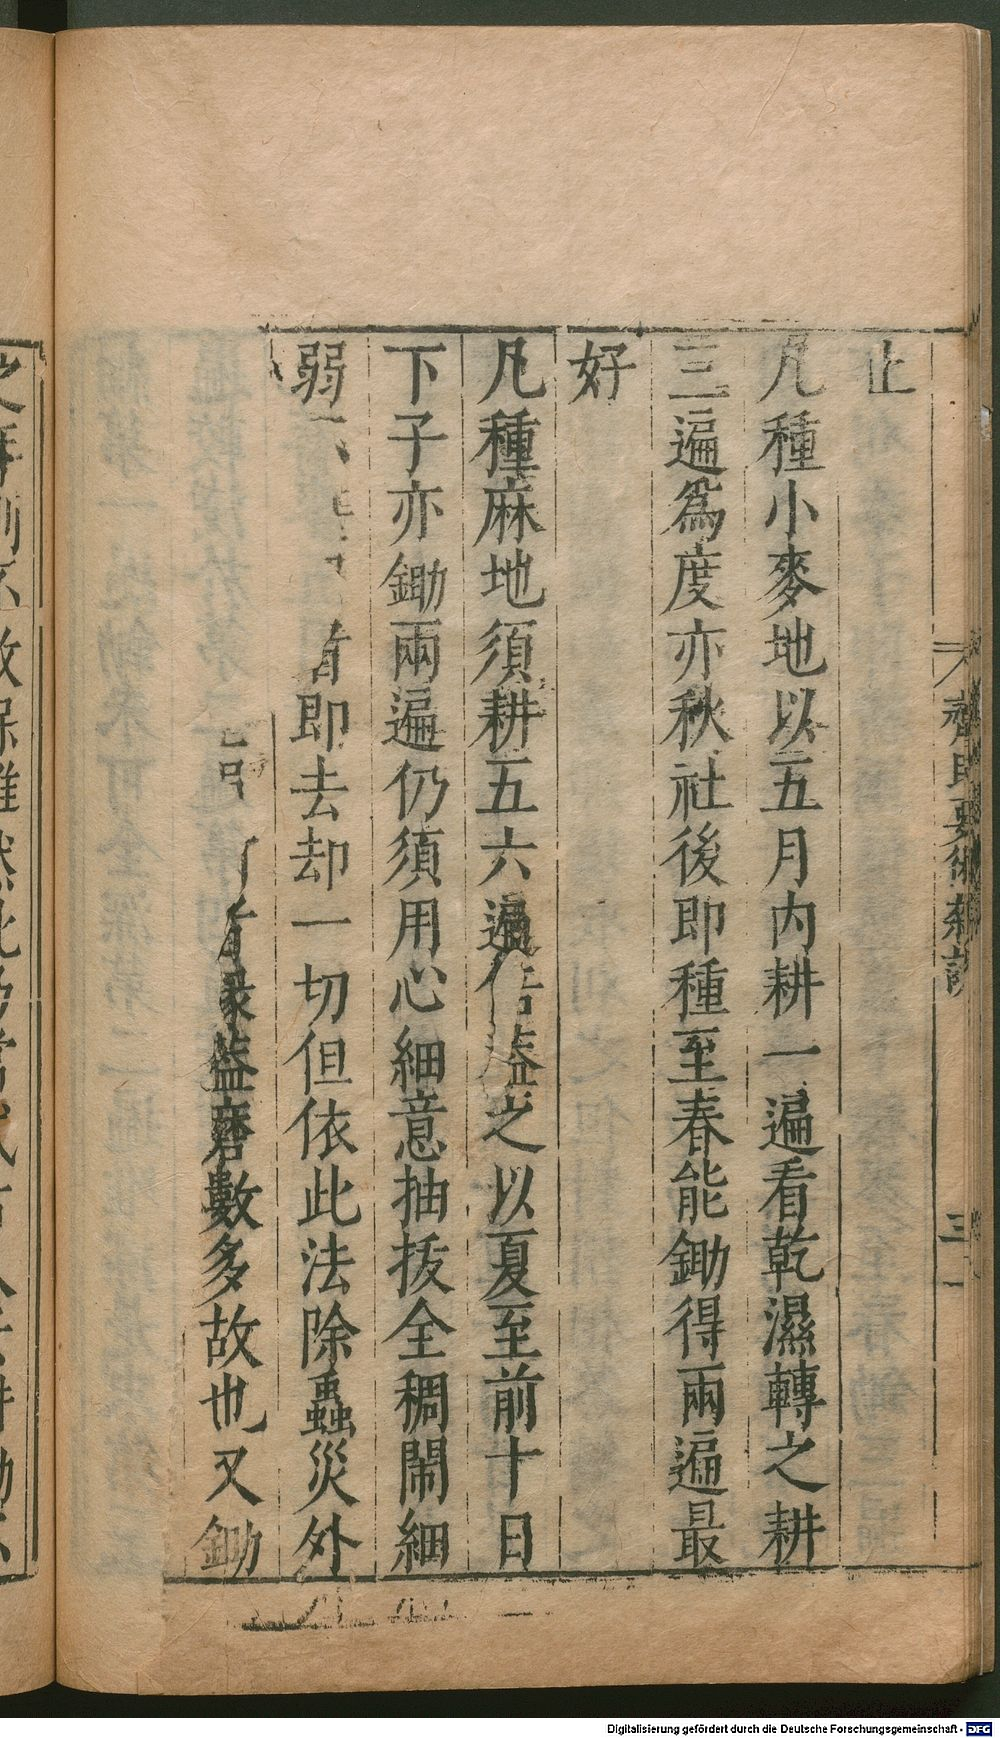 止
凡種小麥地以五月內耕一遍看乾濕轉之耕
三遍爲度亦秋社後即種至春能鋤得兩遍最
好
凡種麻地須耕五六遍倍蓋之以夏至前十日
下子亦鋤兩遍仍須用心細意抽拔全稠鬧細
弱不 者即去却一切但依此法除蟲災外
蓋磨數多故也又鋤
齊民要術雜說
三
Digitalisierung gefördert durch die Deutsche Forschungsgemeinschaft - DFG